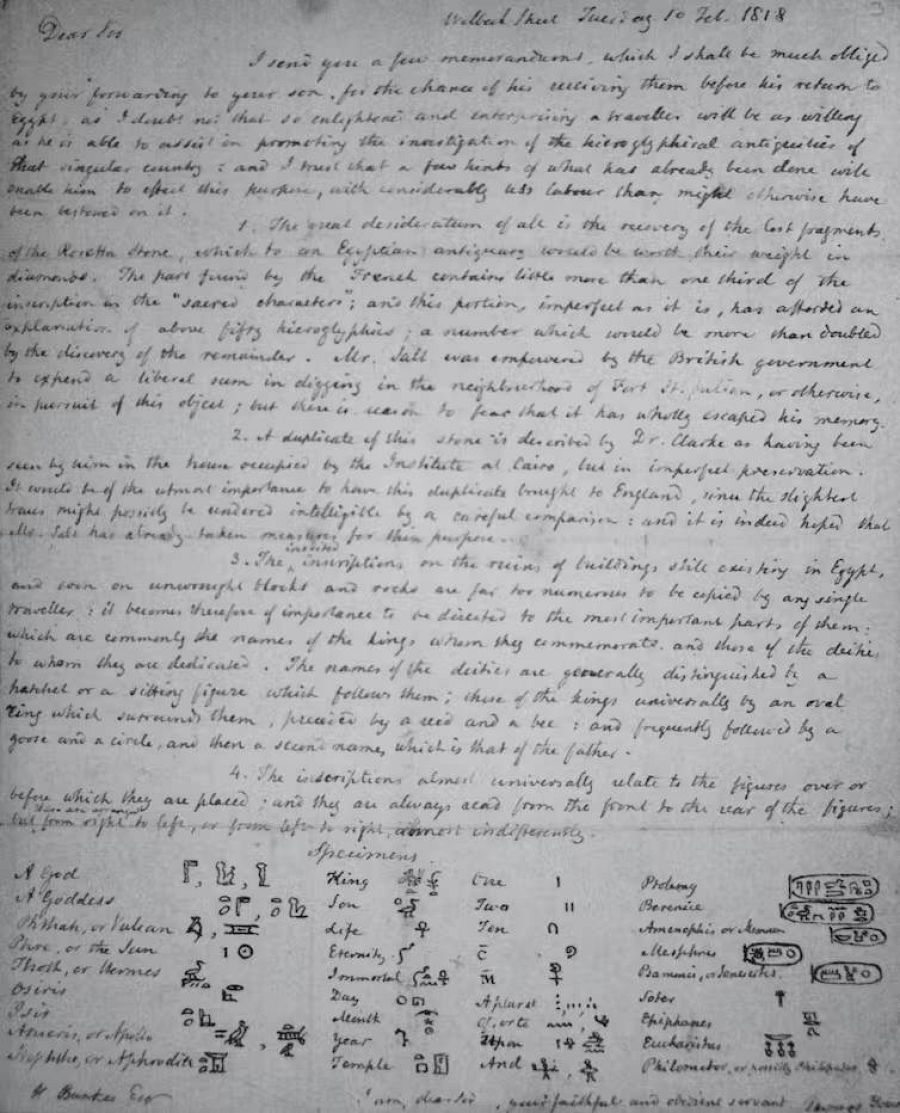 3
Welbeck Street Tuesday 10 Feb. 1818
Dear Sir
I send you a few memorandums, which I shall be much obliged
by your forwarding to your son, for the chance of his receiving them before his return to
Egypt, as I doubt not that so enlightened and enterprising a traveller will be as willing
as he is able to assist in promoting the investigation of the hieroglyphical antiquities of
that singular country: and I trust that a few hints of what has already been done will
enable him to effect this purpose, with considerably less labour than might otherwise have
been bestowed on it.
1. The great desideratum of all is the recovery of the lost fragments
of the Rosetta Stone, which to an Egyptian antiquary would be worth their weight in
diamonds. The part found by the French contains little more than one third of the
inscription in the "sacred characters"; and this portion, imperfect as it is, has afforded an
explanation of above fifty hieroglyphics; a number which would be more than doubled
by the discovery of the remainder. Mr. Salt was empowered by the British government
to expend a liberal sum in digging in the neighbourhood of Fort St. Julian, or otherwise,
in pursuit of this object; but there is reason to fear that it has wholly escaped his memory.
2. A duplicate of this stone is described by Dr. Clarke as having been
seen by him in the house occupied by the Institute at Cairo, but in imperfect preservation.
It would be of the utmost importance to have this duplicate brought to England, since the slightest
traces might possibly be rendered intelligible by a careful comparison: and it is indeed hoped that
Mr. Salt has already taken measures for this purpose.
3. The inscriptions on the ruins of buildings still existing in Egypt,
and even on unwrought blocks and rocks are far too numerous to be copied by any single
traveller: it becomes therefore of importance to be directed to the most important parts of them:
which are commonly the names of the kings whom they commemorate and those of the deities
to whom they are dedicated. The names of the deities are generally distinguished by a
hatchet or a sitting figure which follows them; those of the kings universally by an oval
ring which surrounds them, preceded by a reed and a bee: and frequently followed by a
goose and a circle, and then a second name, which is that of the father.
4. The inscriptions almost universally relate to the figures over or
before which they are placed; and they are always read from the front to the rear of the figures;
but from right to left, or from left to right, almost indifferently.
Specimens.
A God King One Ptolemy
A Goddess Son Two Berenice
Phthah, or Vulcan Life Ten Amenophis or Memnon
Phre, or the Sun Eternity C Mesphres
Thoth, or Hermes Immortal M
Osiris Day A plural Soter
Isis Month Of, or to Epiphanes
Arueris, or Apollo Year Upon Eucharistus
Nephthe, or Aphrodite Temple And Philometor, or possibly Philopator
Bankes Esq I am, dear Sir, your faithful and obedient servant Thomas Young